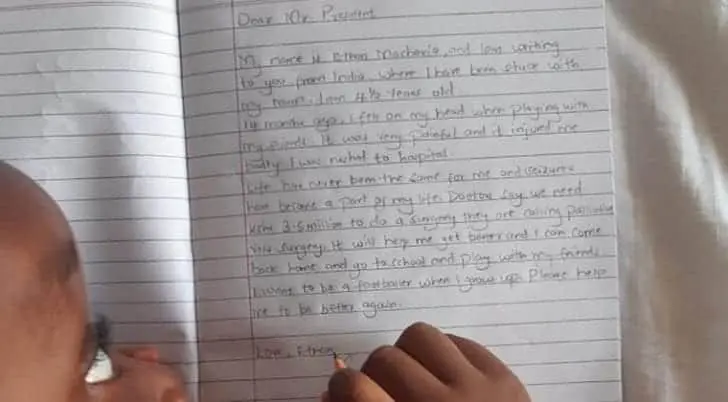 Dear Mr. President
My name is Ethan Macharia, and I am writing
to you from India, where I have been stuck with
my I am 4½ years old
14 months ago, I fell on my head when playing with
my friends. It was very painful and it injured me
badly. I was rushed to hospital.
Life has never been the same for me and seizures
have become a part of my life. Doctors say we need
kshs 3.5 million to do a surgery they are calling
surgery. It will help me get better and I can come
back home and go to school and play with my friends
I want to be a footballer when I grow up. Please help
me to be better again.
Love, Ethan